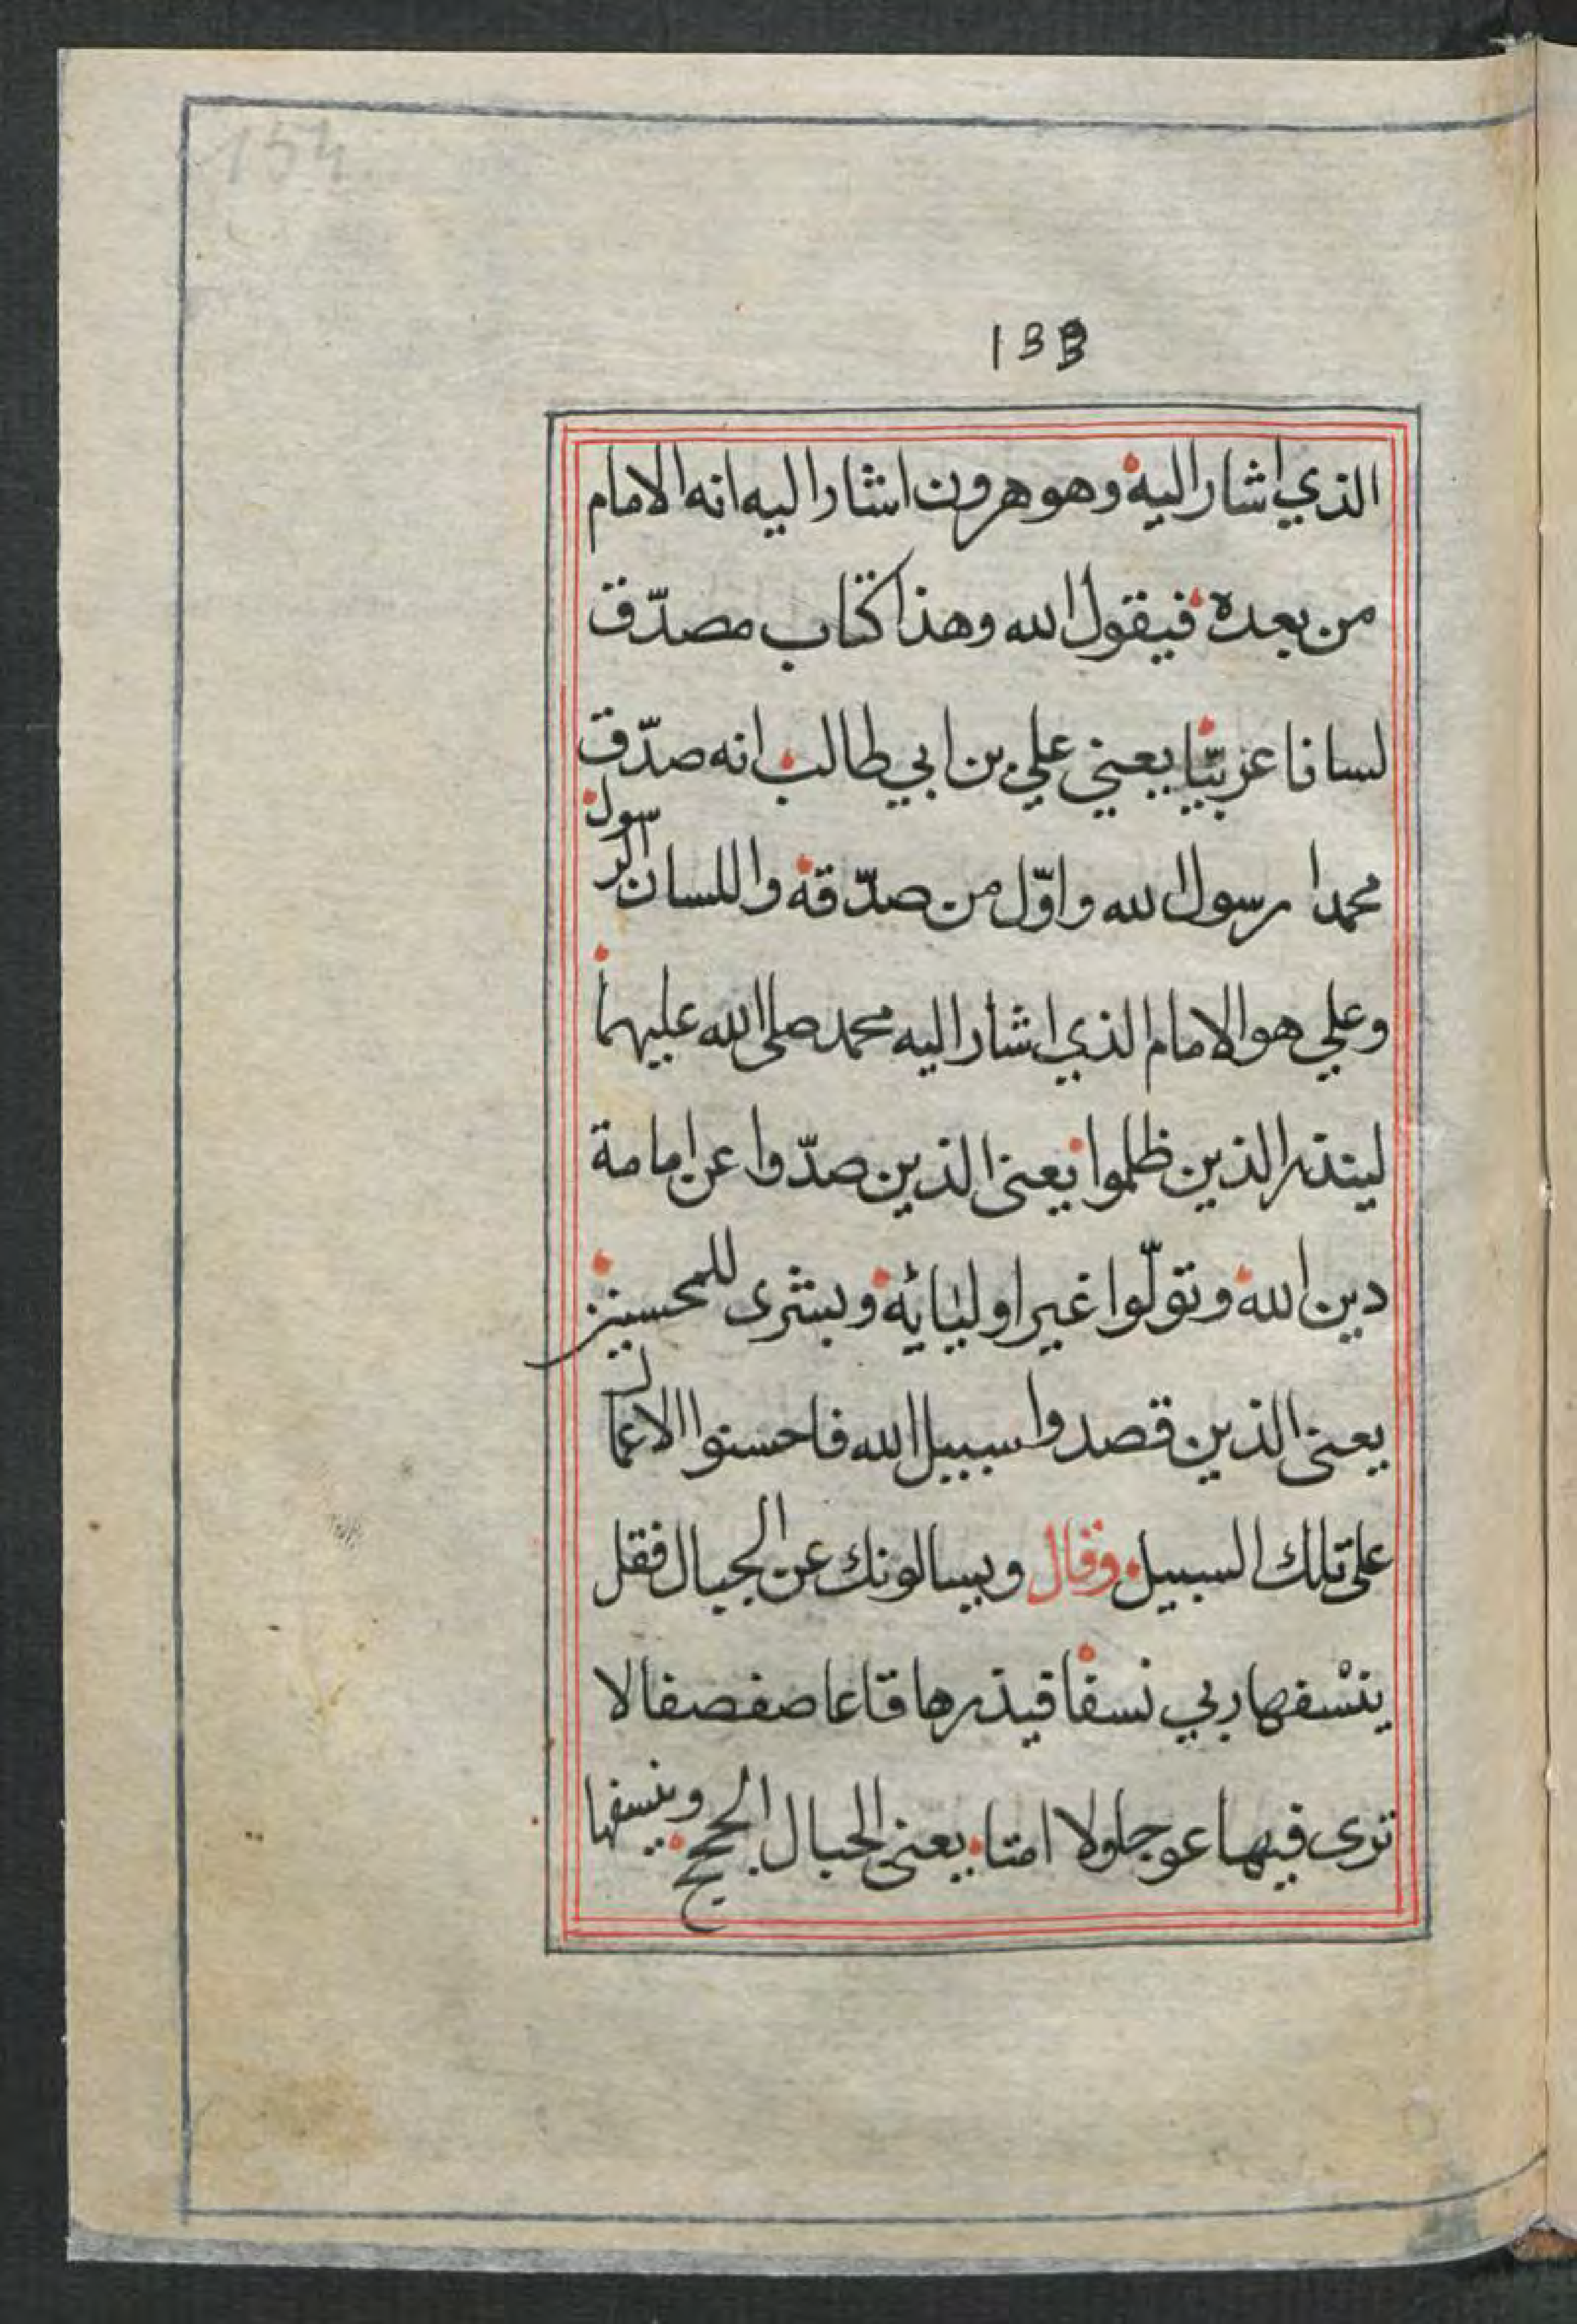 154
133
الذي اشار اليه وهو هرون اشار اليه انه الامام
من بعده فيقول الله وهذا كتاب مصدّق
لسانا عربيّا يعني علي بن ابي طالب انه صدّق
محمدا رسول الله واوّل من صدّقه واللسان الرسول
وعلي هو الامام الذي اشار اليه محمد صلى الله عليهما
لينذر الذين ظلموا يعنى الذين صدّوا عن امامة
دين الله وتولّوا غير اوليائه وبشرى للمحسنين
يعنى الذين قصدوا سبيل الله فاحسنوا الاعمال
على تلك السبيل وقال ويسالونك عن الجبال فقل
ينسْفها ربي نسفا فيذرها قاعا صفصفا لا
ترى فيها عوجا ولا امتا يعنى الجبال الحجج وينسفها